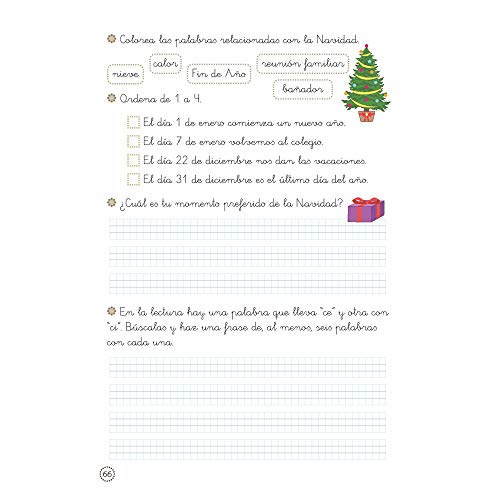 Colorea las palabras relacionadas con la Navidad.
nieve
calor
Fin de Año
reunión familiar
bañador
Ordena de 1 a 4.
El día 1 de enero comienza un nuevo año.
El día 7 de enero volvemos al colegio.
El día 22 de diciembre nos dan las vacaciones.
El día 31 de diciembre es el último día del año.
¿Cuál es tu momento preferido de la Navidad?
En la lectura hay una palabra que lleva "ce" y otra con
"ci". Búscalas y haz una frase de, al menos, seis palabras
con cada una.
66